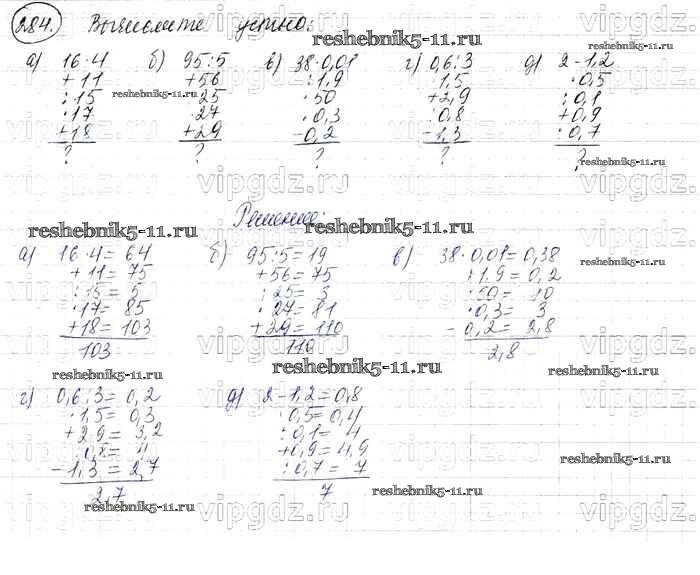 284. Вычислите устно:
а) 16·4 б) 95:5 в) 38·0,01 г) 0,6:3 д) 2-1,2
+11 +56 :1,9 ·1,5 ·0,5
:15 :25 ·50 +2,9 :0,1
·17 ·27 ·0,3 :0,8 +0,9
+18 +29 -0,2 -1,3 :0,7
? ? ? ? ?
Решение:
а) 16·4=64 б) 95:5=19 в) 38·0,01=0,38
+11=75 +56=75 :1.9=0,2
:15=5 :25=3 ·50=10
·17=85 ·27=81 ·0,3=3
+18=103 +29=110 -0,2=2,8
103 110 2,8
г) 0,6:3=0,2 д) 2-1,2=0,8
·1,5=0,3 ·0,5=0,4
+2,9=3,2 :0,1=4
:0,8=4 +0,9=4,9
-1,3=2,7 :0,7=7
2,7 7
reshebnik5-11.ru
vipgdz.ru